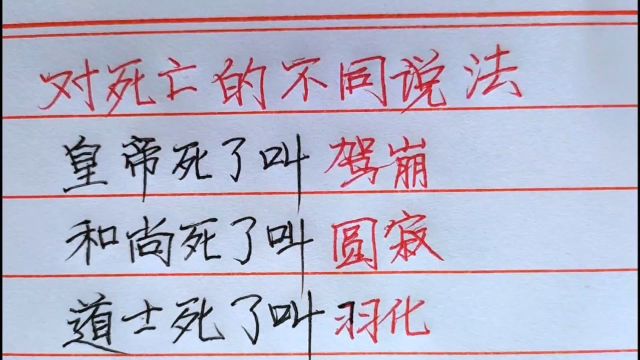 对死亡的不同说法
皇帝死了叫驾崩
和尚死了叫圆寂
道士死了叫羽化